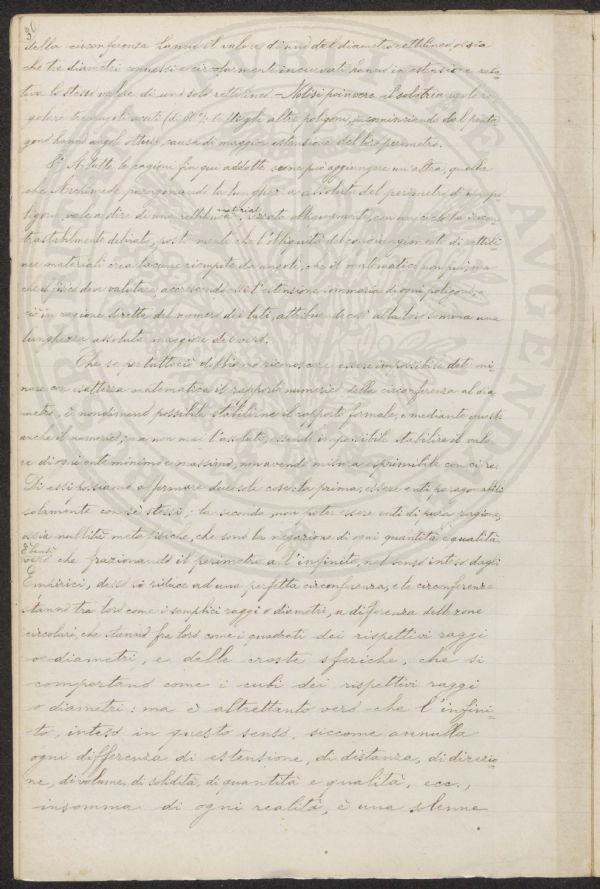 36
della circonferenza hanno il valore di uno del diametro rettilineo, ossia
che tre diametri connessi e circolarmente incurvati hanno in estensione rela-
tiva lo stesso valore di uno solo rettilineo. - Notisi poi invece il solo triangolo re-
golare ha angoli acuti (di 60°); tutti gli altri poligoni, incominciando dal penta-
gono hanno angoli ottusi, causa di maggior estensione del loro perimetro.
8° A tutte le ragioni fin qui addotte, se ne può aggiungere un'altra, quella
che Archimede paragonando la lunghezza assoluta del perimetro d'un po-
ligono, vale a dire di una rettilinea materiale, con un circolo ha incon-
trastabilmente delirato, posto mente che l'obliquità del congiungimento di rettili-
nee materiali crea lacune riempite da angoli, che il matematico non può, ma
che il fisico deve valutare accrescendo essi l'estensione sommaria di ogni poligono, e
ciò in ragione diretta del numero dei lati, attribuendo così alla loro somma una
lunghezza assoluta maggiore del vero.
Che se per tuttociò dobbiamo riconoscere essere impossibile determi-
nare con esattezza matematica il rapporto numerico della circonferenza al dia-
metro, è nondimeno possibile stabilirne il rapporto formale, e mediante questo
anche il numerico; ma non mai l'assoluto, essendo impossibile stabilire il valo-
re di ogni ente minimo e massimo, non avendo misura esprimibile con cifre.
Di essi possiamo affermare due sole cose: la prima, essere enti paragonabili
solamente con sè stessi; la seconda, non poter essere enti di pura ragione,
ossia nullità metafisiche, che sono la negazione di ogni quantità e qualità.
È bensì
vero che frazionando il perimetro a l'infinito, nel senso inteso dagli
Empirici, desso si riduce ad una perfetta circonferenza, e le circonferenze
stanno tra loro come i semplici raggi o diametri, a differenza delle zone
circolari, che stanno fra loro come i quadrati dei rispettivi raggi
o diametri, e delle croste sferiche, che si
comportano come i cubi dei rispettivi raggi
o diametri: ma è altrettanto vero che l'infini-
to, inteso in questo senso, siccome annulla
ogni differenza di estensione, di distanza, di direzio-
ne, di volume, di solidità, di quantità e qualità, ecc.,
insomma di ogni realità, è una solenne